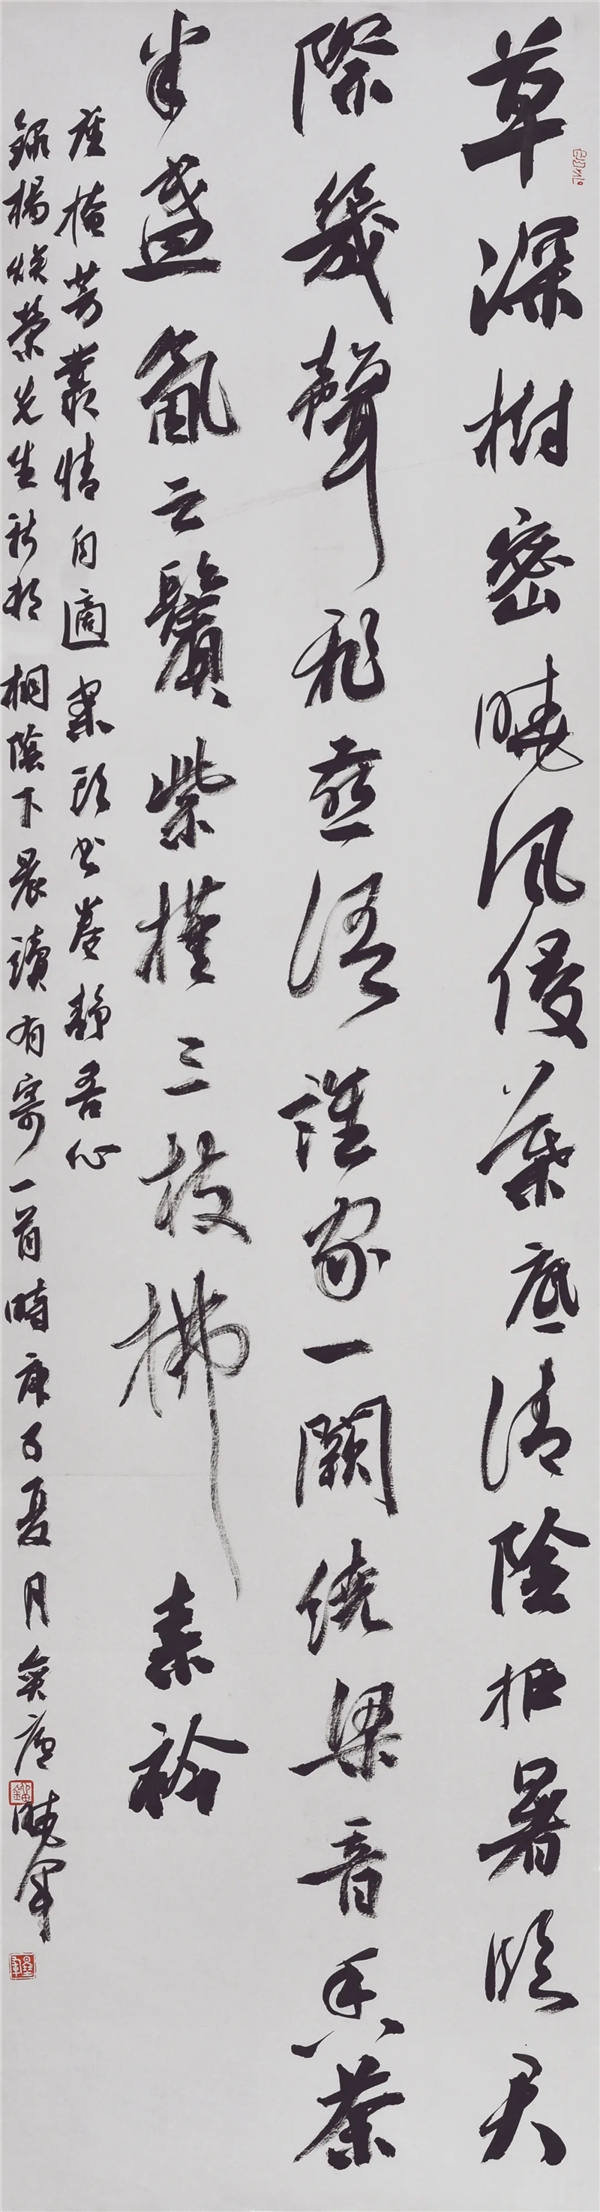 草深樹密曉風侵葉底清陰拒暑臨天
際幾聲飛燕語誰家一闋繞梁音香茶
半盞氤云鬢紫槿三枝拂素衿
座芳叢情自適案頭書卷靜吾心
錄楊煥榮先生桐陰下晨讀有寄一首時庚子夏月奕廬曉軍